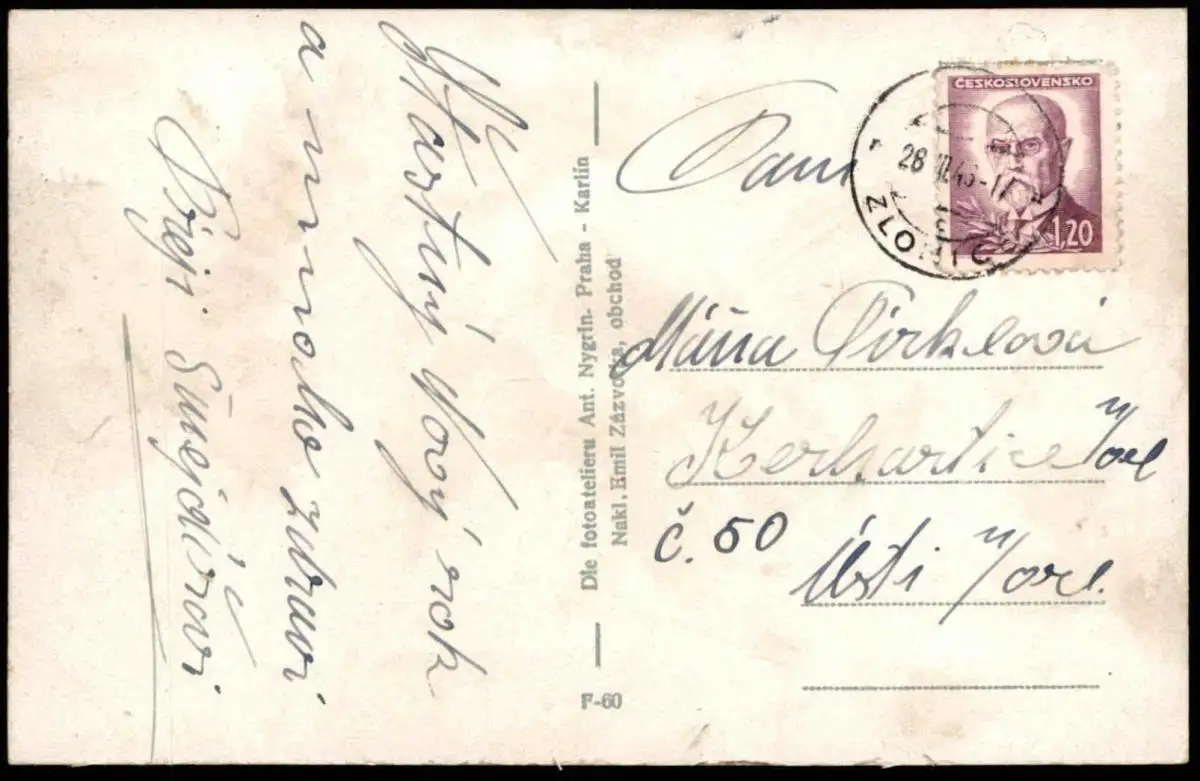 Šťastný Nový rok
a mnoho zdraví
Přejí Šmejdířovi
Die fotoatelieru Ant. Nygrin. Praha - Karlín
Nakl. Emil Zázvorka, obchod
F-60
ČESKOSLOVENSKO
1,20
28 XII 46-17
ZLONIC
Paní
Máňa Pírklová
Kerhartice n/orl
č. 50
Ústí n/orl.